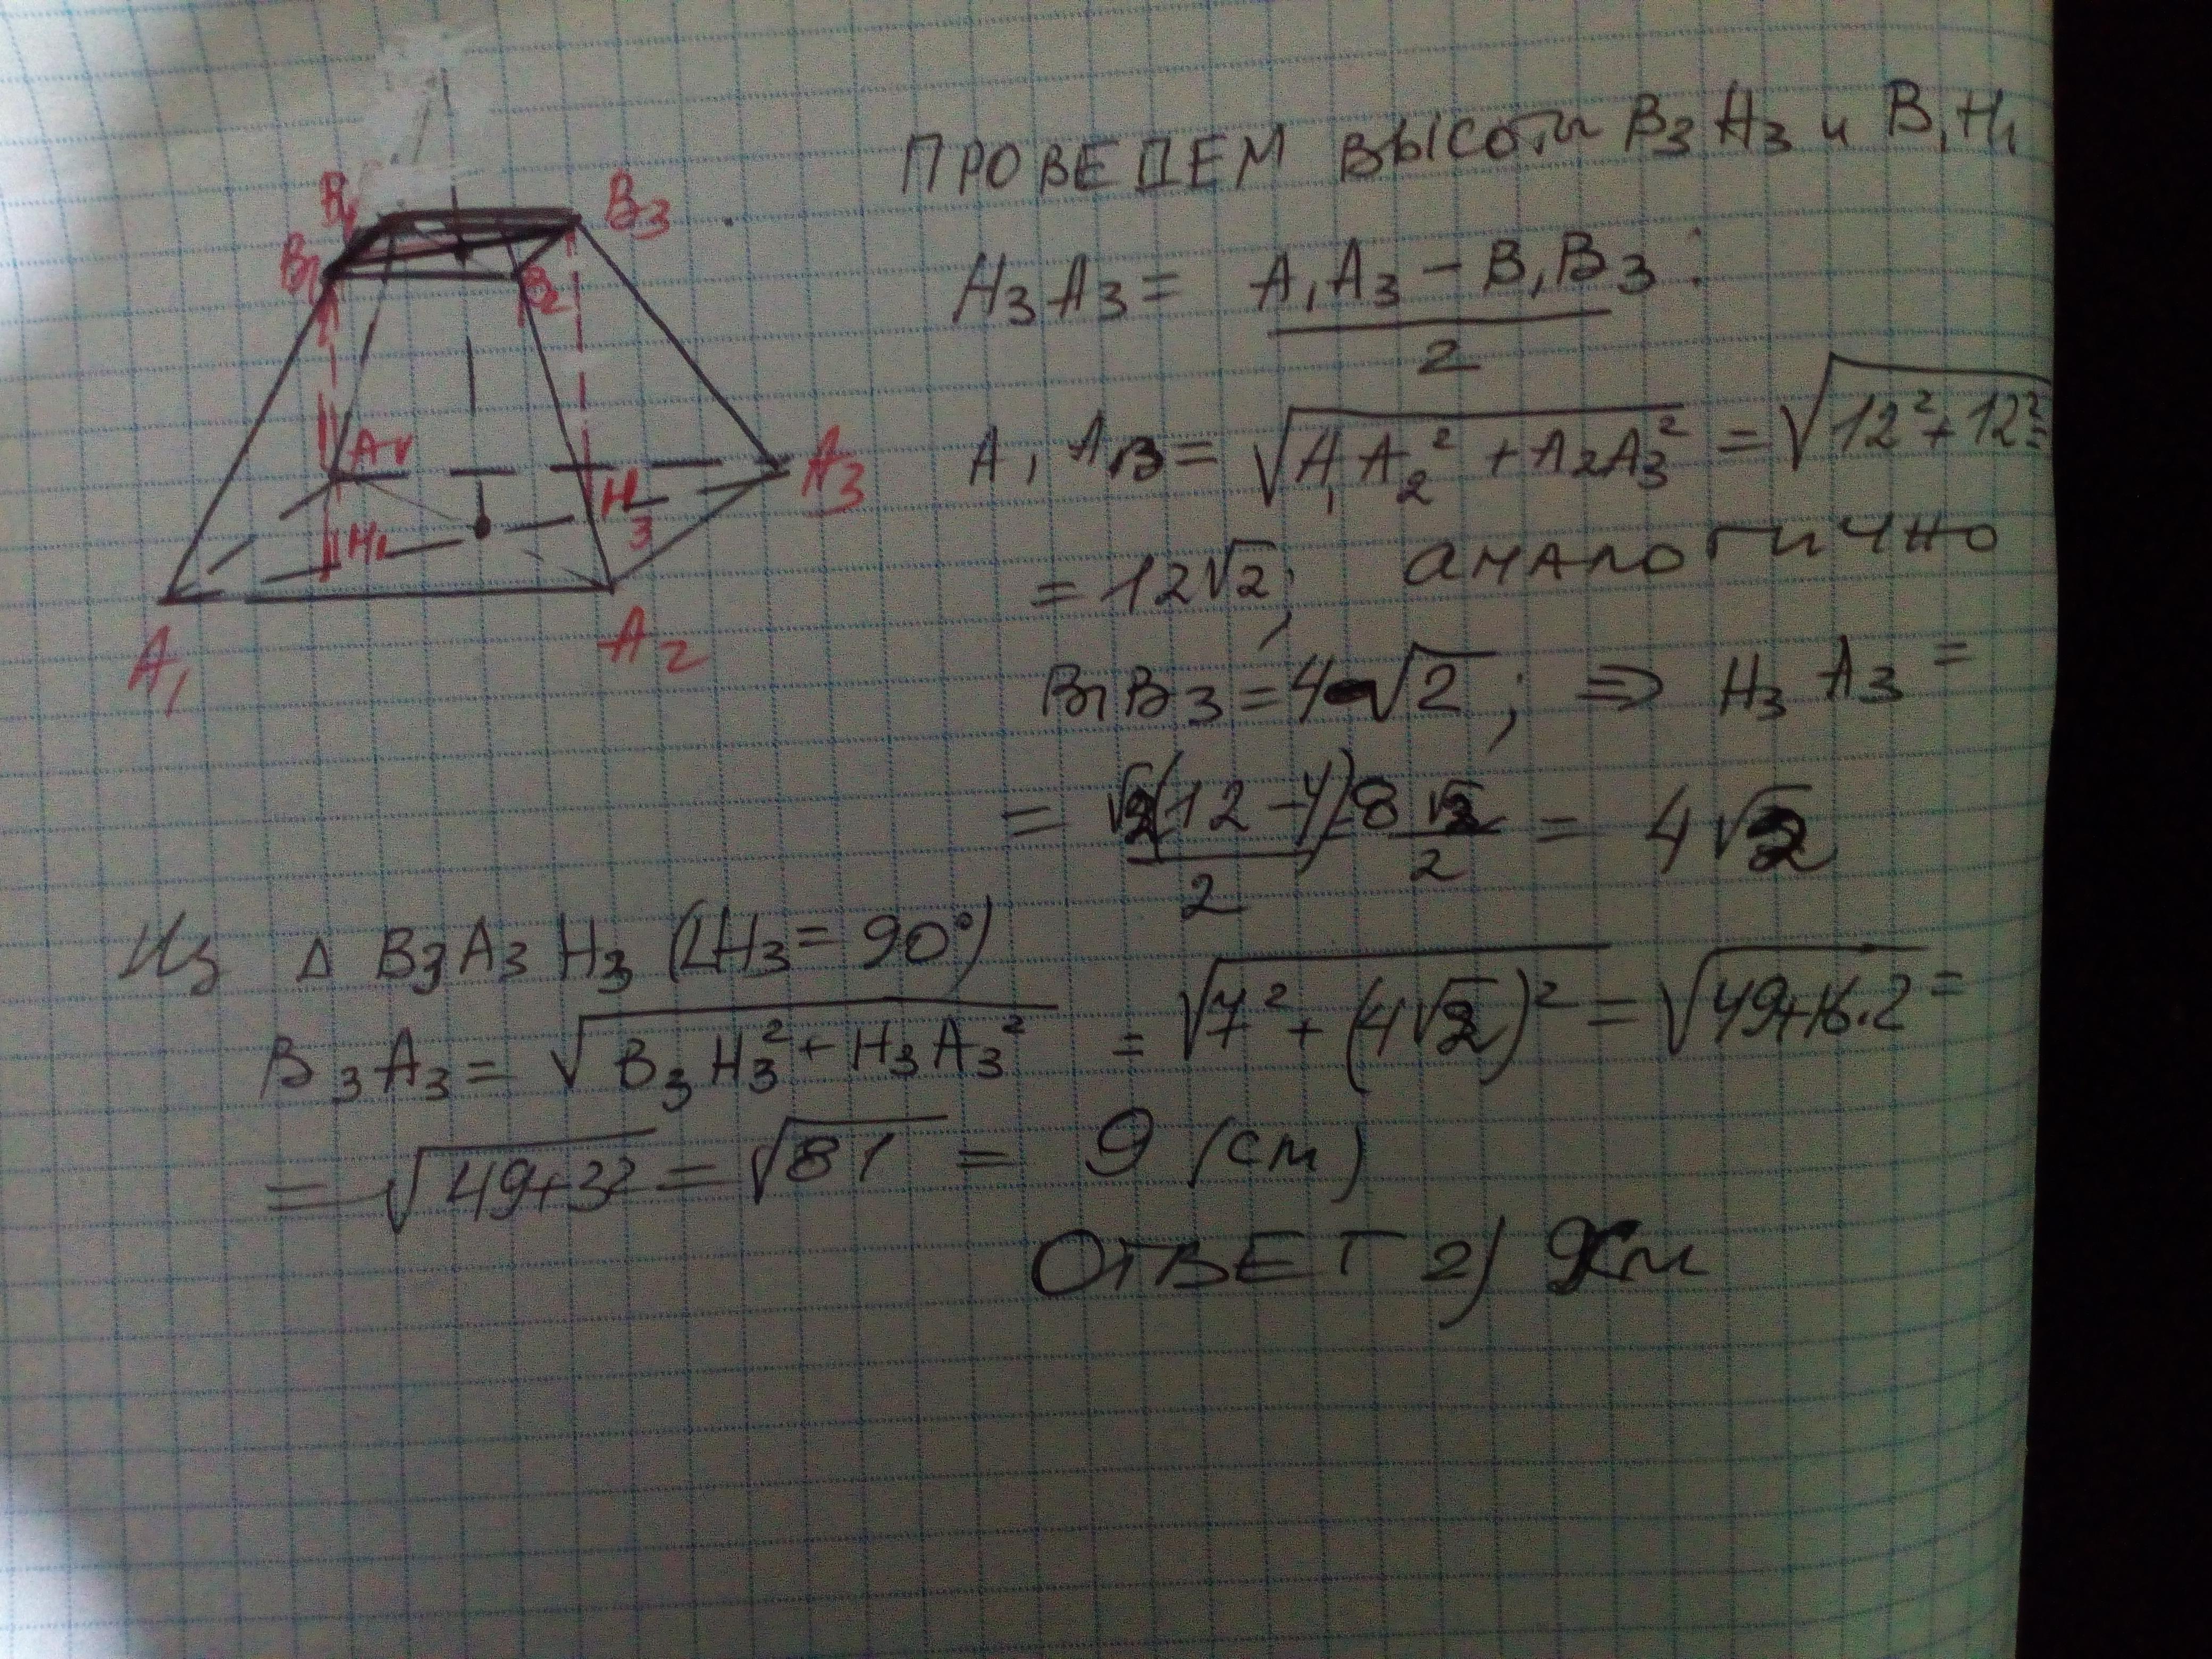 B4
B3
B1
B2
A4
A3
H1
H3
A1
A2
ПРОВЕДЕМ высоты B3H3 и B1H1
H3A3 = (A1A3 - B1B3)/2 :
A1A3 = √(A1A2² + A2A3²) = √(12² + 12²) =
= 12√2; аналогично
B1B3 = 4√2 ; ⇒ H3A3 =
= √2(12-4)/2 = 8√2/2 = 4√2
Из Δ B3A3H3 (∠H3 = 90°)
B3A3 = √(B3H3² + H3A3²) = √(7² + (4√2)²) = √(49+16·2) =
= √(49+32) = √81 = 9 (см)
ОТВЕТ г) 9 см